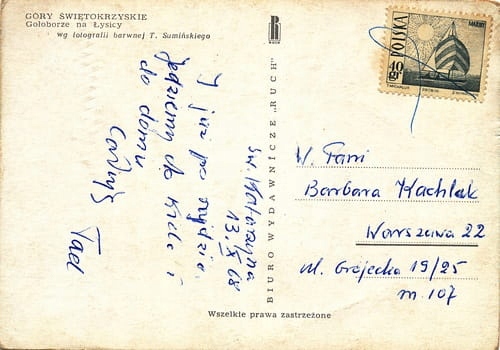 GÓRY ŚWIĘTOKRZYSKIE
Gołoborze na Łysicy
wg fotografii barwnej T. Sumińskiego
RUCH
POLSKA
40 gr
BIURO WYDAWNICZE „RUCH"
Św. Katarzyna
13.IX 68
I już po
Jedziemy do i
do domu
Całuję
Tad
W. Pani
Barbara Kachlak
Warszawa 22
ul. Grójecka 19/25
m. 107
Wszelkie prawa zastrzeżone